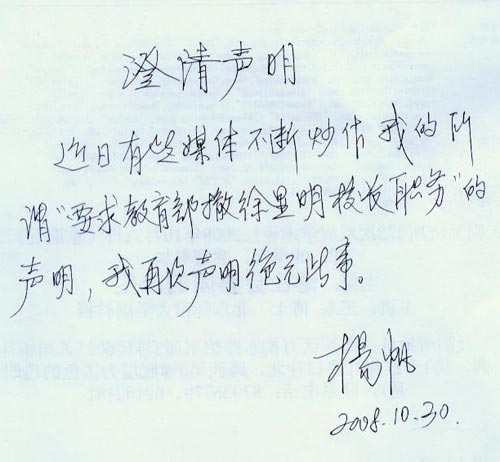 澄清声明
近日有些媒体不断炒作我的所
谓“要求教育部撤徐显明校长职务”的
声明，我再次声明绝无此事。
楊帆
2008.10.30.